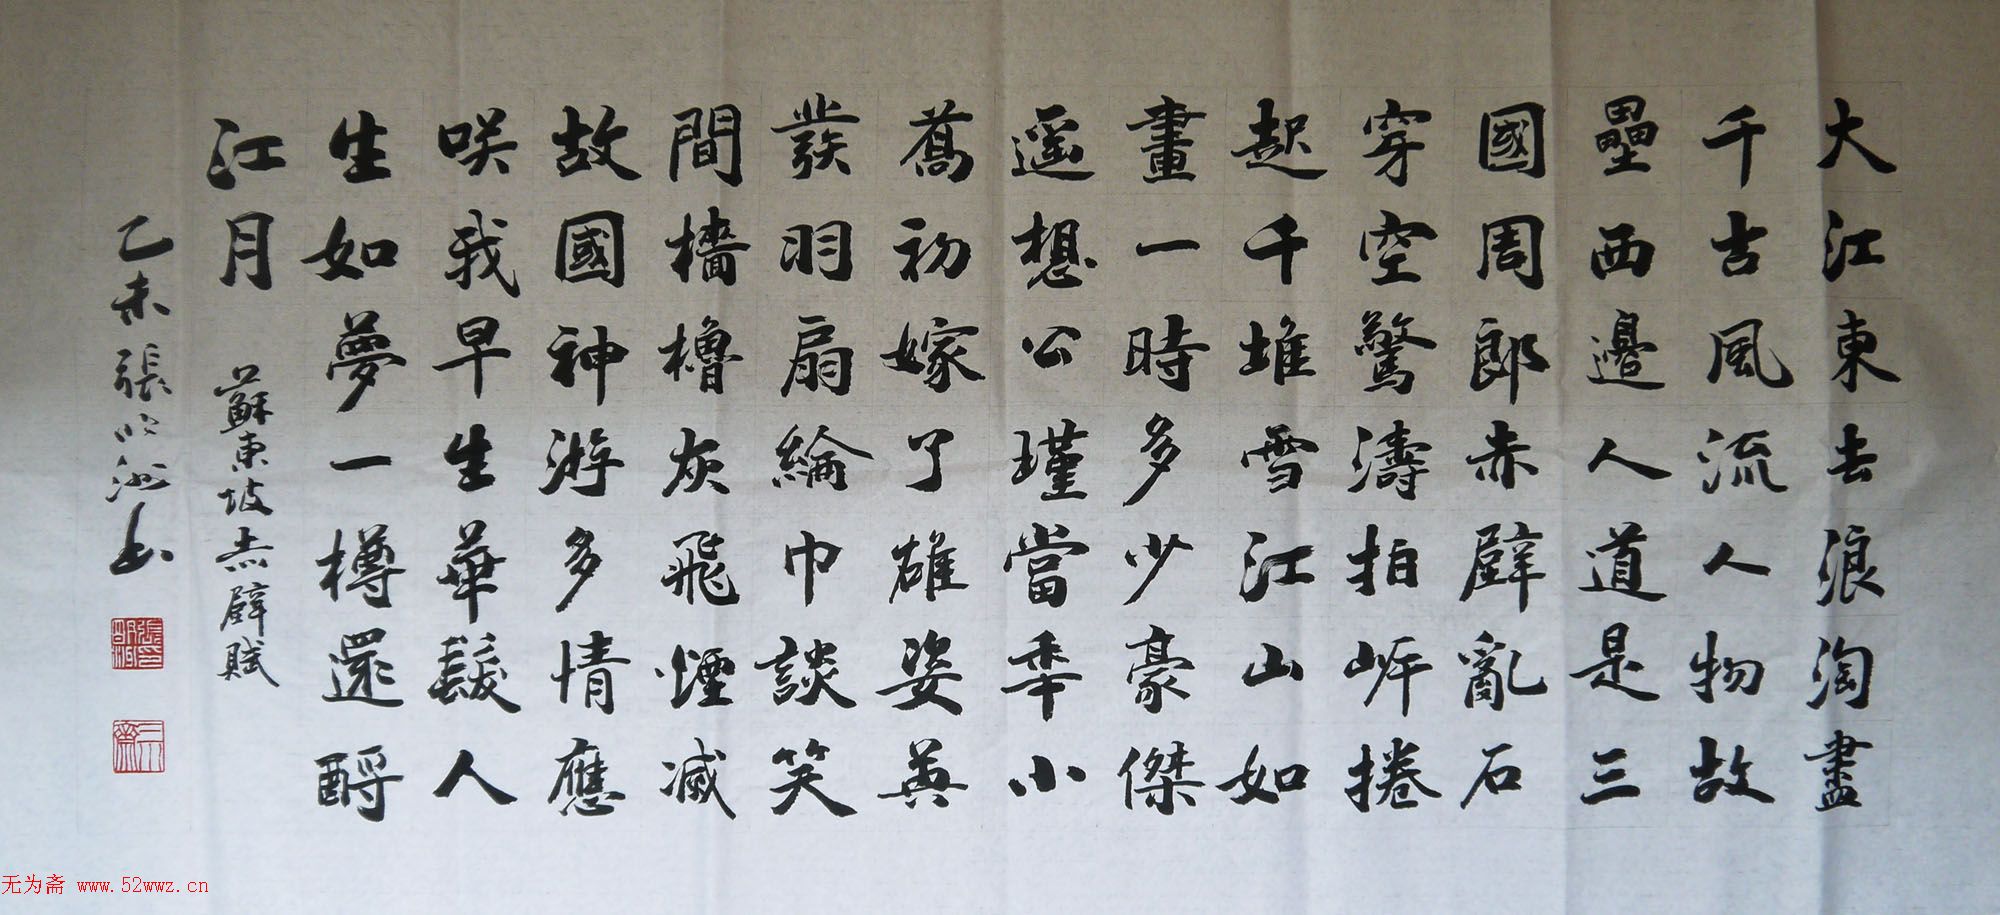 大江東去浪淘盡
千古風流人物故
壘西邊人道是三
國周郎赤壁亂石
穿空驚濤拍岸捲
起千堆雪江山如
畫一時多少豪傑
遥想公瑾當年小
喬初嫁了雄姿英
發羽扇綸巾談笑
間檣櫓灰飛煙滅
故國神游多情應
咲我早生華髮人
生如夢一樽還酹
江月
蘇東坡赤壁賦
乙未張洲書
无为斋 www.52wwz.cn